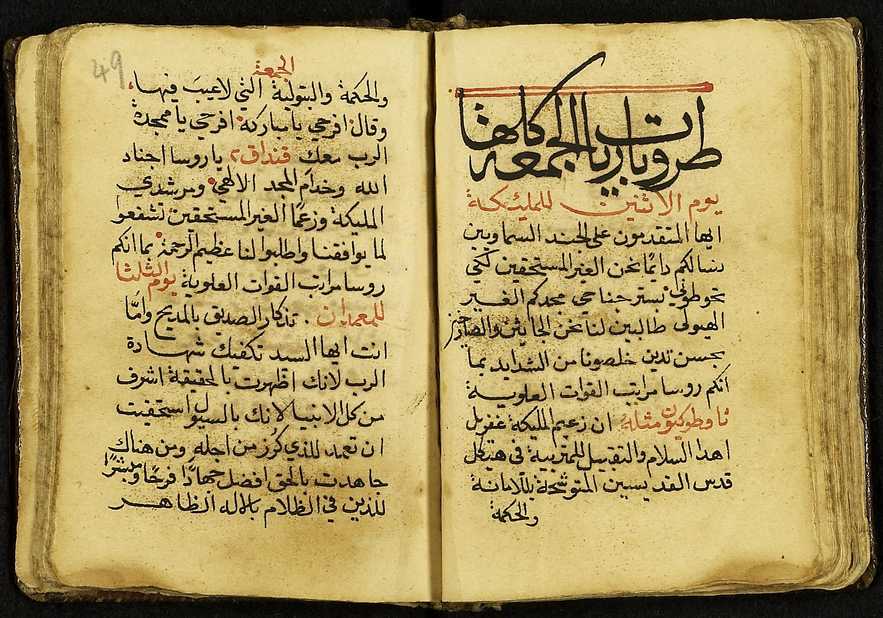 طروباريات الجمعة كلها
يوم الاثنين للمليكة
ايها المتقدمون على الجند السماويين
نسالكم دايمًا نحن الغير المستحقين لكي
تحوطونا بستر جناحي مجدكم الغير
الهيولي طالبين لنا نحن الجاثين والصارخين
بحسن تدين خلصونا من الشدايد بما
انكم روسا مراتب القوات العلوية
ثاوطوكيون مثله ان زعيم المليكة غفريل
اهدا السلام للمتربية في هيكل
قدس القديسين المتوشحة بالامانة
والحكمة
49
الجمعة
والحكمة والبتولية التي لاعيب فيها
وقال افرحي يا مباركة افرحي يا ممجدة
الرب معك قنداق ٢ يا روسا اجناد
الله وخدام المجد الالهي ومرشدي
المليكة وزعما الغير المستحقين تشفعوا
لما يوافقنا واطلبوا لنا عظيم الرحمة بما انكم
روسا مراتب القوات العلوية يوم الثلثا
للمعمدان تذكار الصديق بالمديح وامّا
انت ايها السيد تكفيك شهادة
الرب لانك اظهرت بالحقيقة اشرف
من كل الانبيا لانك بالسيول استحقيت
ان تعمد للذي كرز من اجله ومن هناك
جاهدت بالحق افضل جهادًا فرحًا ومبشرًا
للذين في الظلام بالاله الظاهر